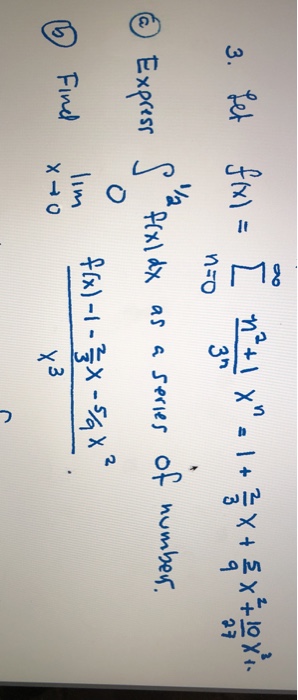 3. Let f(x) = ∞ Σ n=0 n²+1 / 3ⁿ xⁿ = 1 + 2/3 x + 5/9 x² + 10/27 x³ + ..
ⓐ Express ∫₀^1/2 f(x) dx as a series of number.
ⓑ Find lim x→0 f(x) - 1 - 2/3 x - 5/9 x² / x³ .